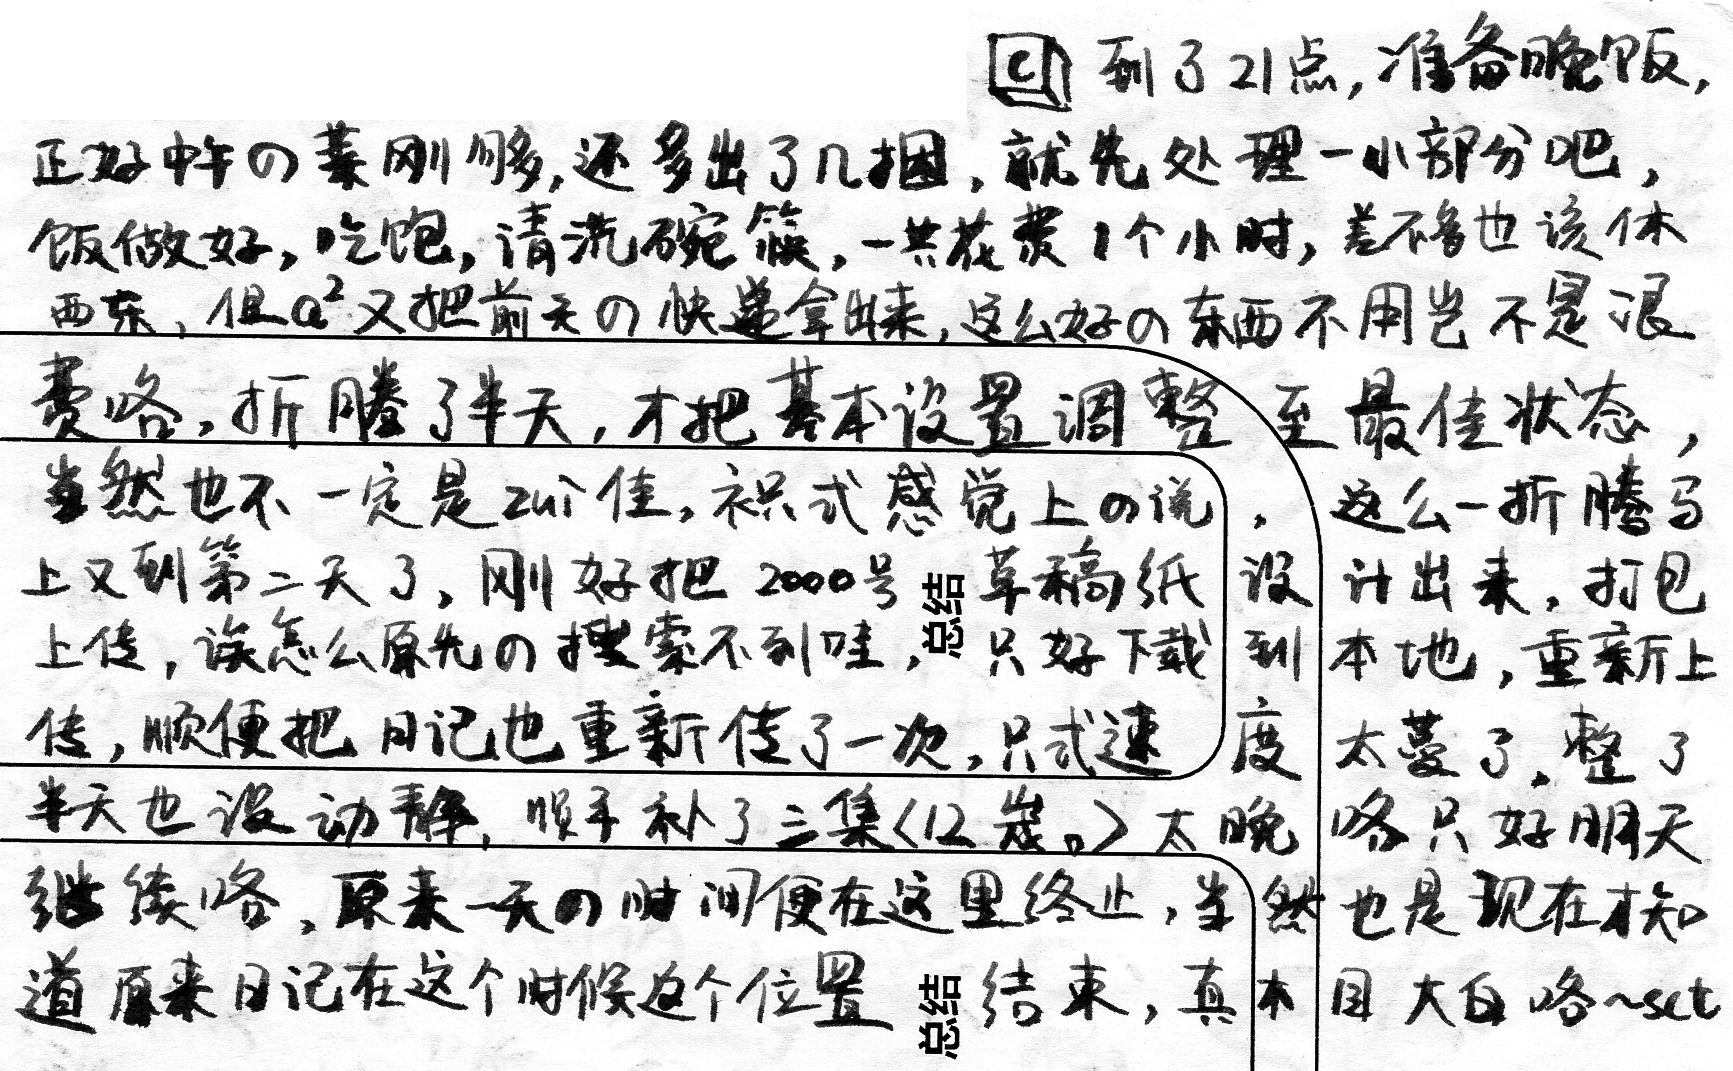 C 到了21点,准备晚饭,
正好中午の菜刚够,还多出了几捆,就先处理一小部分吧,
饭做好,吃饱,请洗碗筷,一共花费1个小时,差不多也该休
西东,但a²又把前天の快递拿出来,这么好の东西不用岂不是浪
费咯,折腾了半天,才把基本设置调整至最佳状态,
当然也不一定是zui佳,只式感觉上の说,这么一折腾马
上又到第二天了,刚好把2000号草稿纸设计出来,打包
上传,诶怎么原先の搜索不到哇,只好下载到本地,重新上
传,顺便把日记也重新传了一次,只式速度太蔓了,整了
半天也没动静,顺手补了三集〈12岁。〉太晚咯只好明天
继续咯,原来一天の时间便在这里终止,当然也是现在才知
道原来日记在这个时候这个位置结束,真木目大白咯~sct
总结
总结